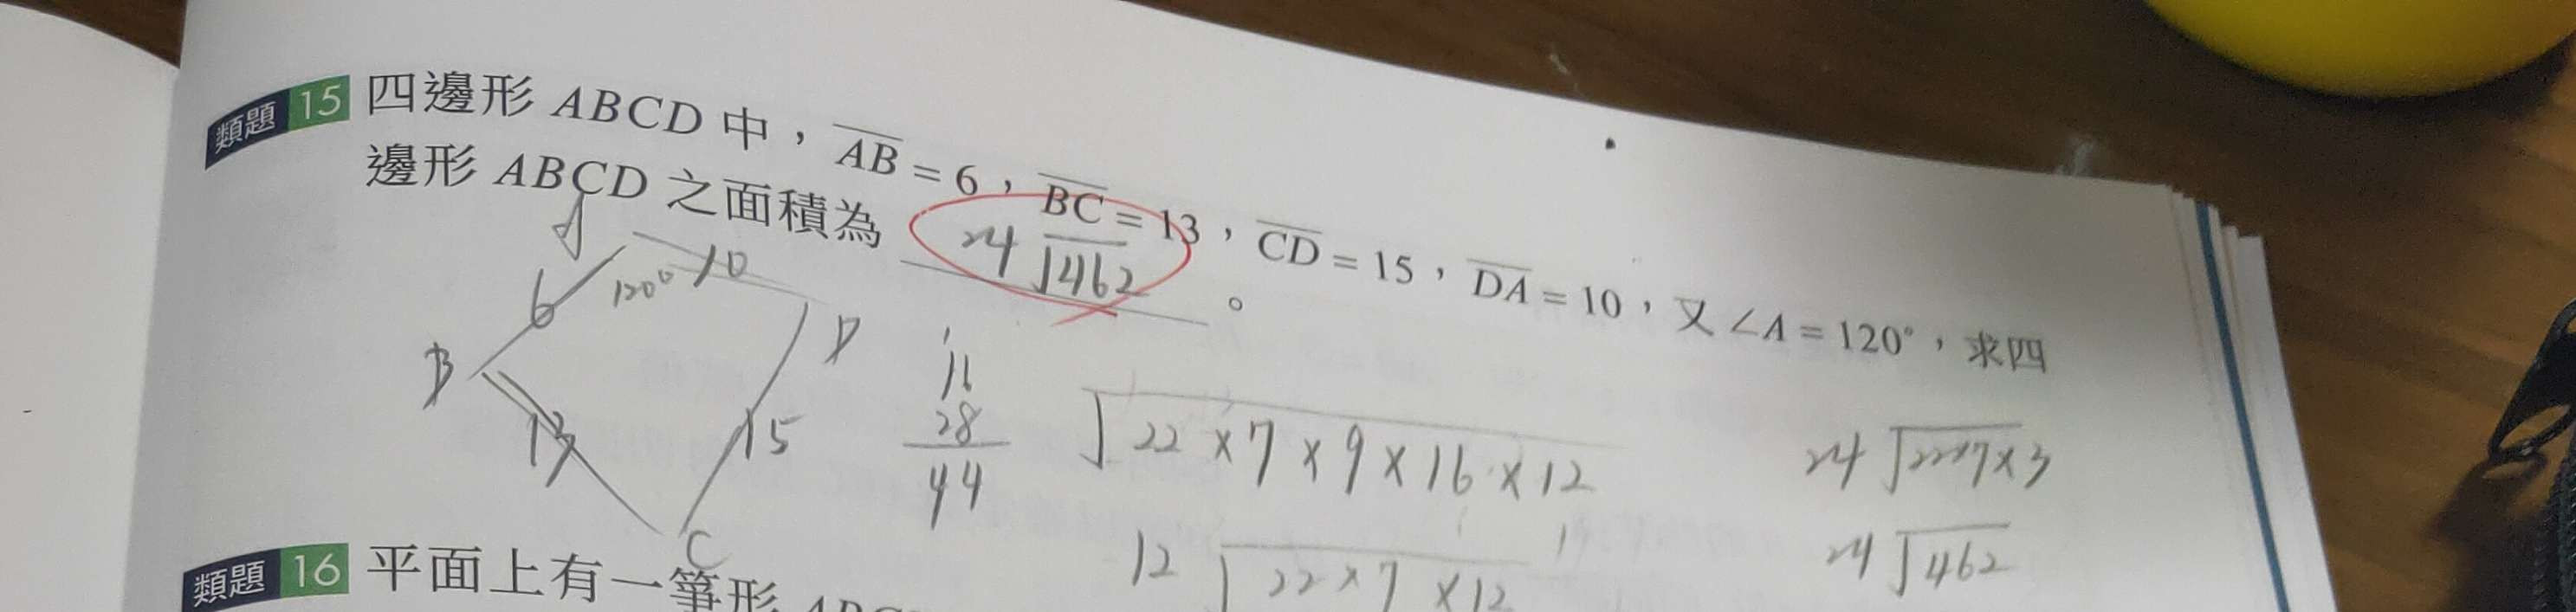 類題 15 四邊形 ABCD 中，AB = 6，BC = 13，CD = 15，DA = 10，又 ∠A = 120°，求四
邊形 ABCD 之面積為 24√462 。
A
6 120° 10
B D
13 15
C
16
28
44
√22×7×9×16×12
12√22×7×12
24√22×7×3
24√462
類題 16 平面上有一箏形